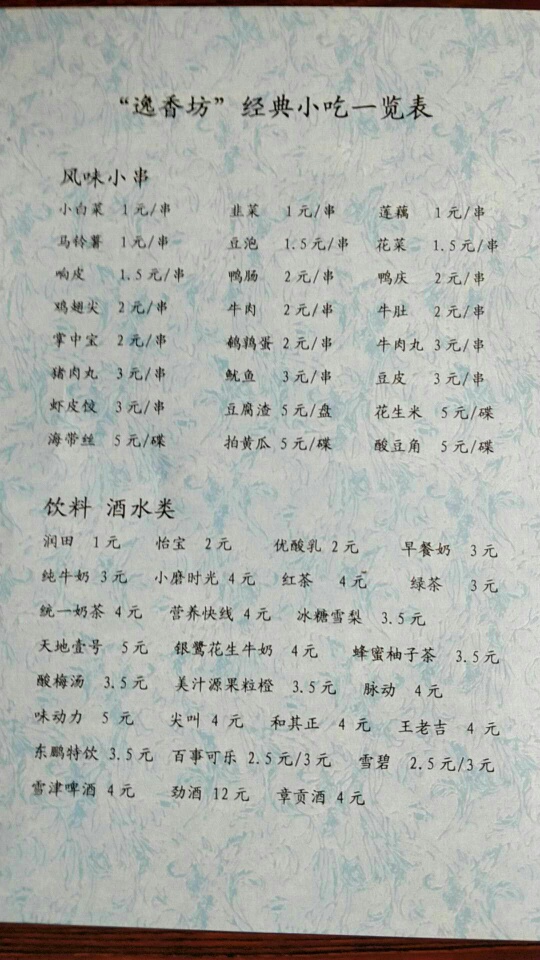 “逸香坊”经典小吃一览表
风味小串
小白菜 1元/串 韭菜 1元/串 莲藕 1元/串
马铃薯 1元/串 豆泡 1.5元/串 花菜 1.5元/串
响皮 1.5元/串 鸭肠 2元/串 鸭庆 2元/串
鸡翅尖 2元/串 牛肉 2元/串 牛肚 2元/串
掌中宝 2元/串 鹌鹑蛋 2元/串 牛肉丸 3元/串
猪肉丸 3元/串 鱿鱼 3元/串 豆皮 3元/串
虾皮饺 3元/串 豆腐渣 5元/盘 花生米 5元/碟
海带丝 5元/碟 拍黄瓜 5元/碟 酸豆角 5元/碟
饮料 酒水类
润田 1元 怡宝 2元 优酸乳 2元 早餐奶 3元
纯牛奶 3元 小磨时光 4元 红茶 4元 绿茶 3元
统一奶茶 4元 营养快线 4元 冰糖雪梨 3.5元
天地壹号 5元 银鹭花生牛奶 4元 蜂蜜柚子茶 3.5元
酸梅汤 3.5元 美汁源果粒橙 3.5元 脉动 4元
味动力 5元 尖叫 4元 和其正 4元 王老吉 4元
东鹏特饮 3.5元 百事可乐 2.5元/3元 雪碧 2.5元/3元
雪津啤酒 4元 劲酒 12元 章贡酒 4元